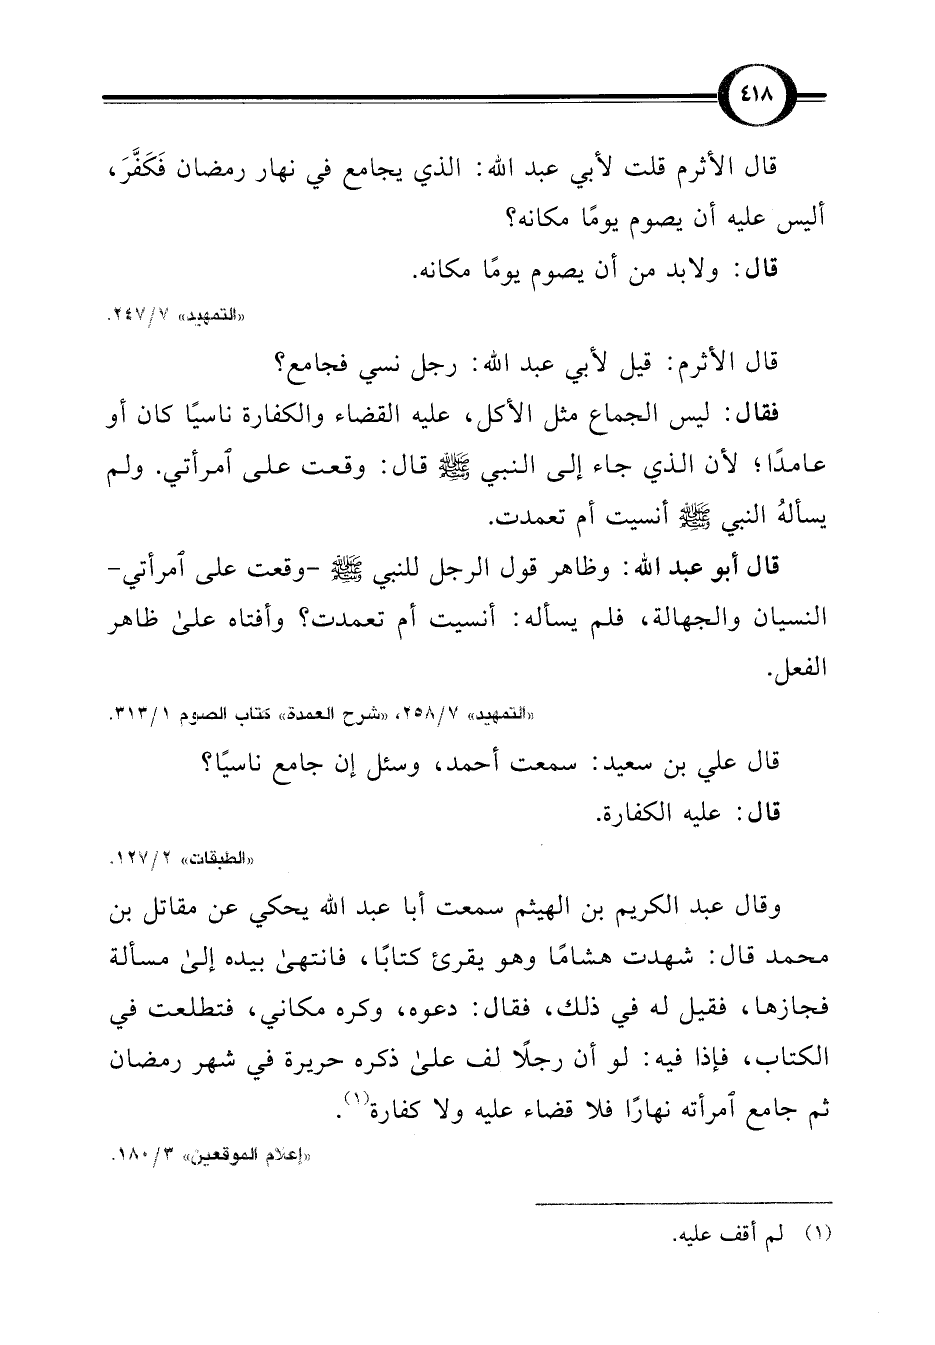 ٤١٨
قال الأثرم قلت لأبي عبد الله: الذي يجامع في نهار رمضان فَكَفَّرَ،
أليس عليه أن يصوم يومًا مكانه؟
قال: ولابد من أن يصوم يومًا مكانه.
«التمهيد» ٧/ ٢٤٧.
قال الأثرم: قيل لأبي عبد الله: رجل نسي فجامع؟
فقال: ليس الجماع مثل الأكل، عليه القضاء والكفارة ناسيًا كان أو
عامدًا؛ لأن الذي جاء إلى النبي ﷺ قال: وقعت على ٱمرأتي. ولم
يسألهُ النبي ﷺ أنسيت أم تعمدت.
قال أبو عبد الله: وظاهر قول الرجل للنبي ﷺ -وقعت على ٱمرأتي-
النسيان والجهالة، فلم يسأله: أنسيت أم تعمدت؟ وأفتاه علىٰ ظاهر
الفعل.
«التمهيد» ٧/ ٢٥٨، «شرح العمدة» كتاب الصوم ١/ ٣١٣.
قال علي بن سعيد: سمعت أحمد، وسئل إن جامع ناسيًا؟
قال: عليه الكفارة.
«الطبقات» ٢/ ١٢٧.
وقال عبد الكريم بن الهيثم سمعت أبا عبد الله يحكي عن مقاتل بن
محمد قال: شهدت هشامًا وهو يقرئ كتابًا، فٱنتهىٰ بيده إلىٰ مسألة
فجازها، فقيل له في ذلك، فقال: دعوه، وكره مكاني، فتطلعت في
الكتاب، فإذا فيه: لو أن رجلًا لف علىٰ ذكره حريرة في شهر رمضان
ثم جامع ٱمرأته نهارًا فلا قضاء عليه ولا كفارة(١).
«إعلام الموقعين» ٣/ ١٨٠.
(١) لم أقف عليه.